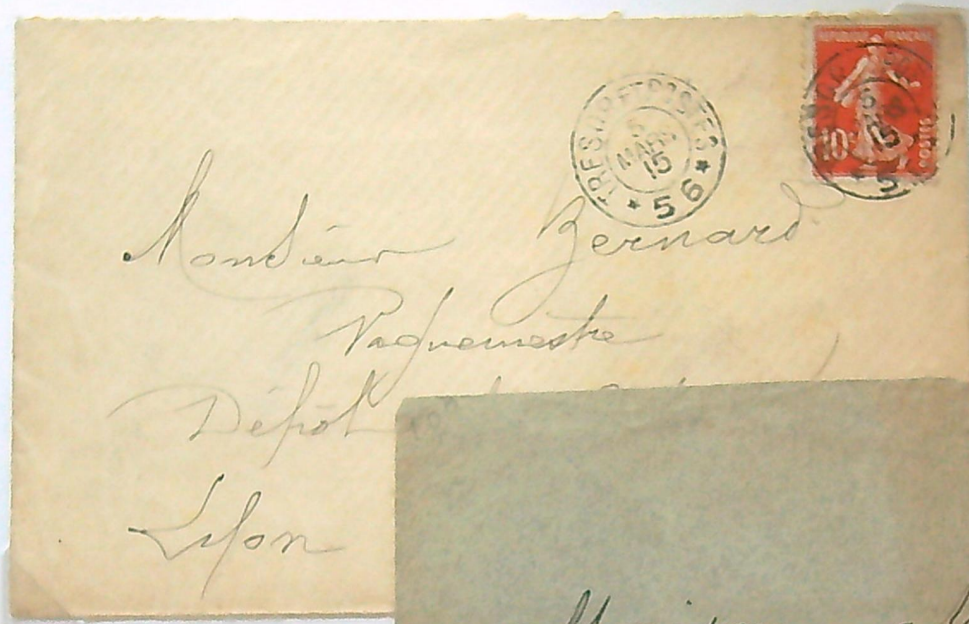 TRESOR ET POSTES
5
MARS
15
* 56 *
REPUBLIQUE FRANCAISE
10c
POSTES
5
15
5
Monsieur Bernard
Vaguemestre
Dépôt
Lyon